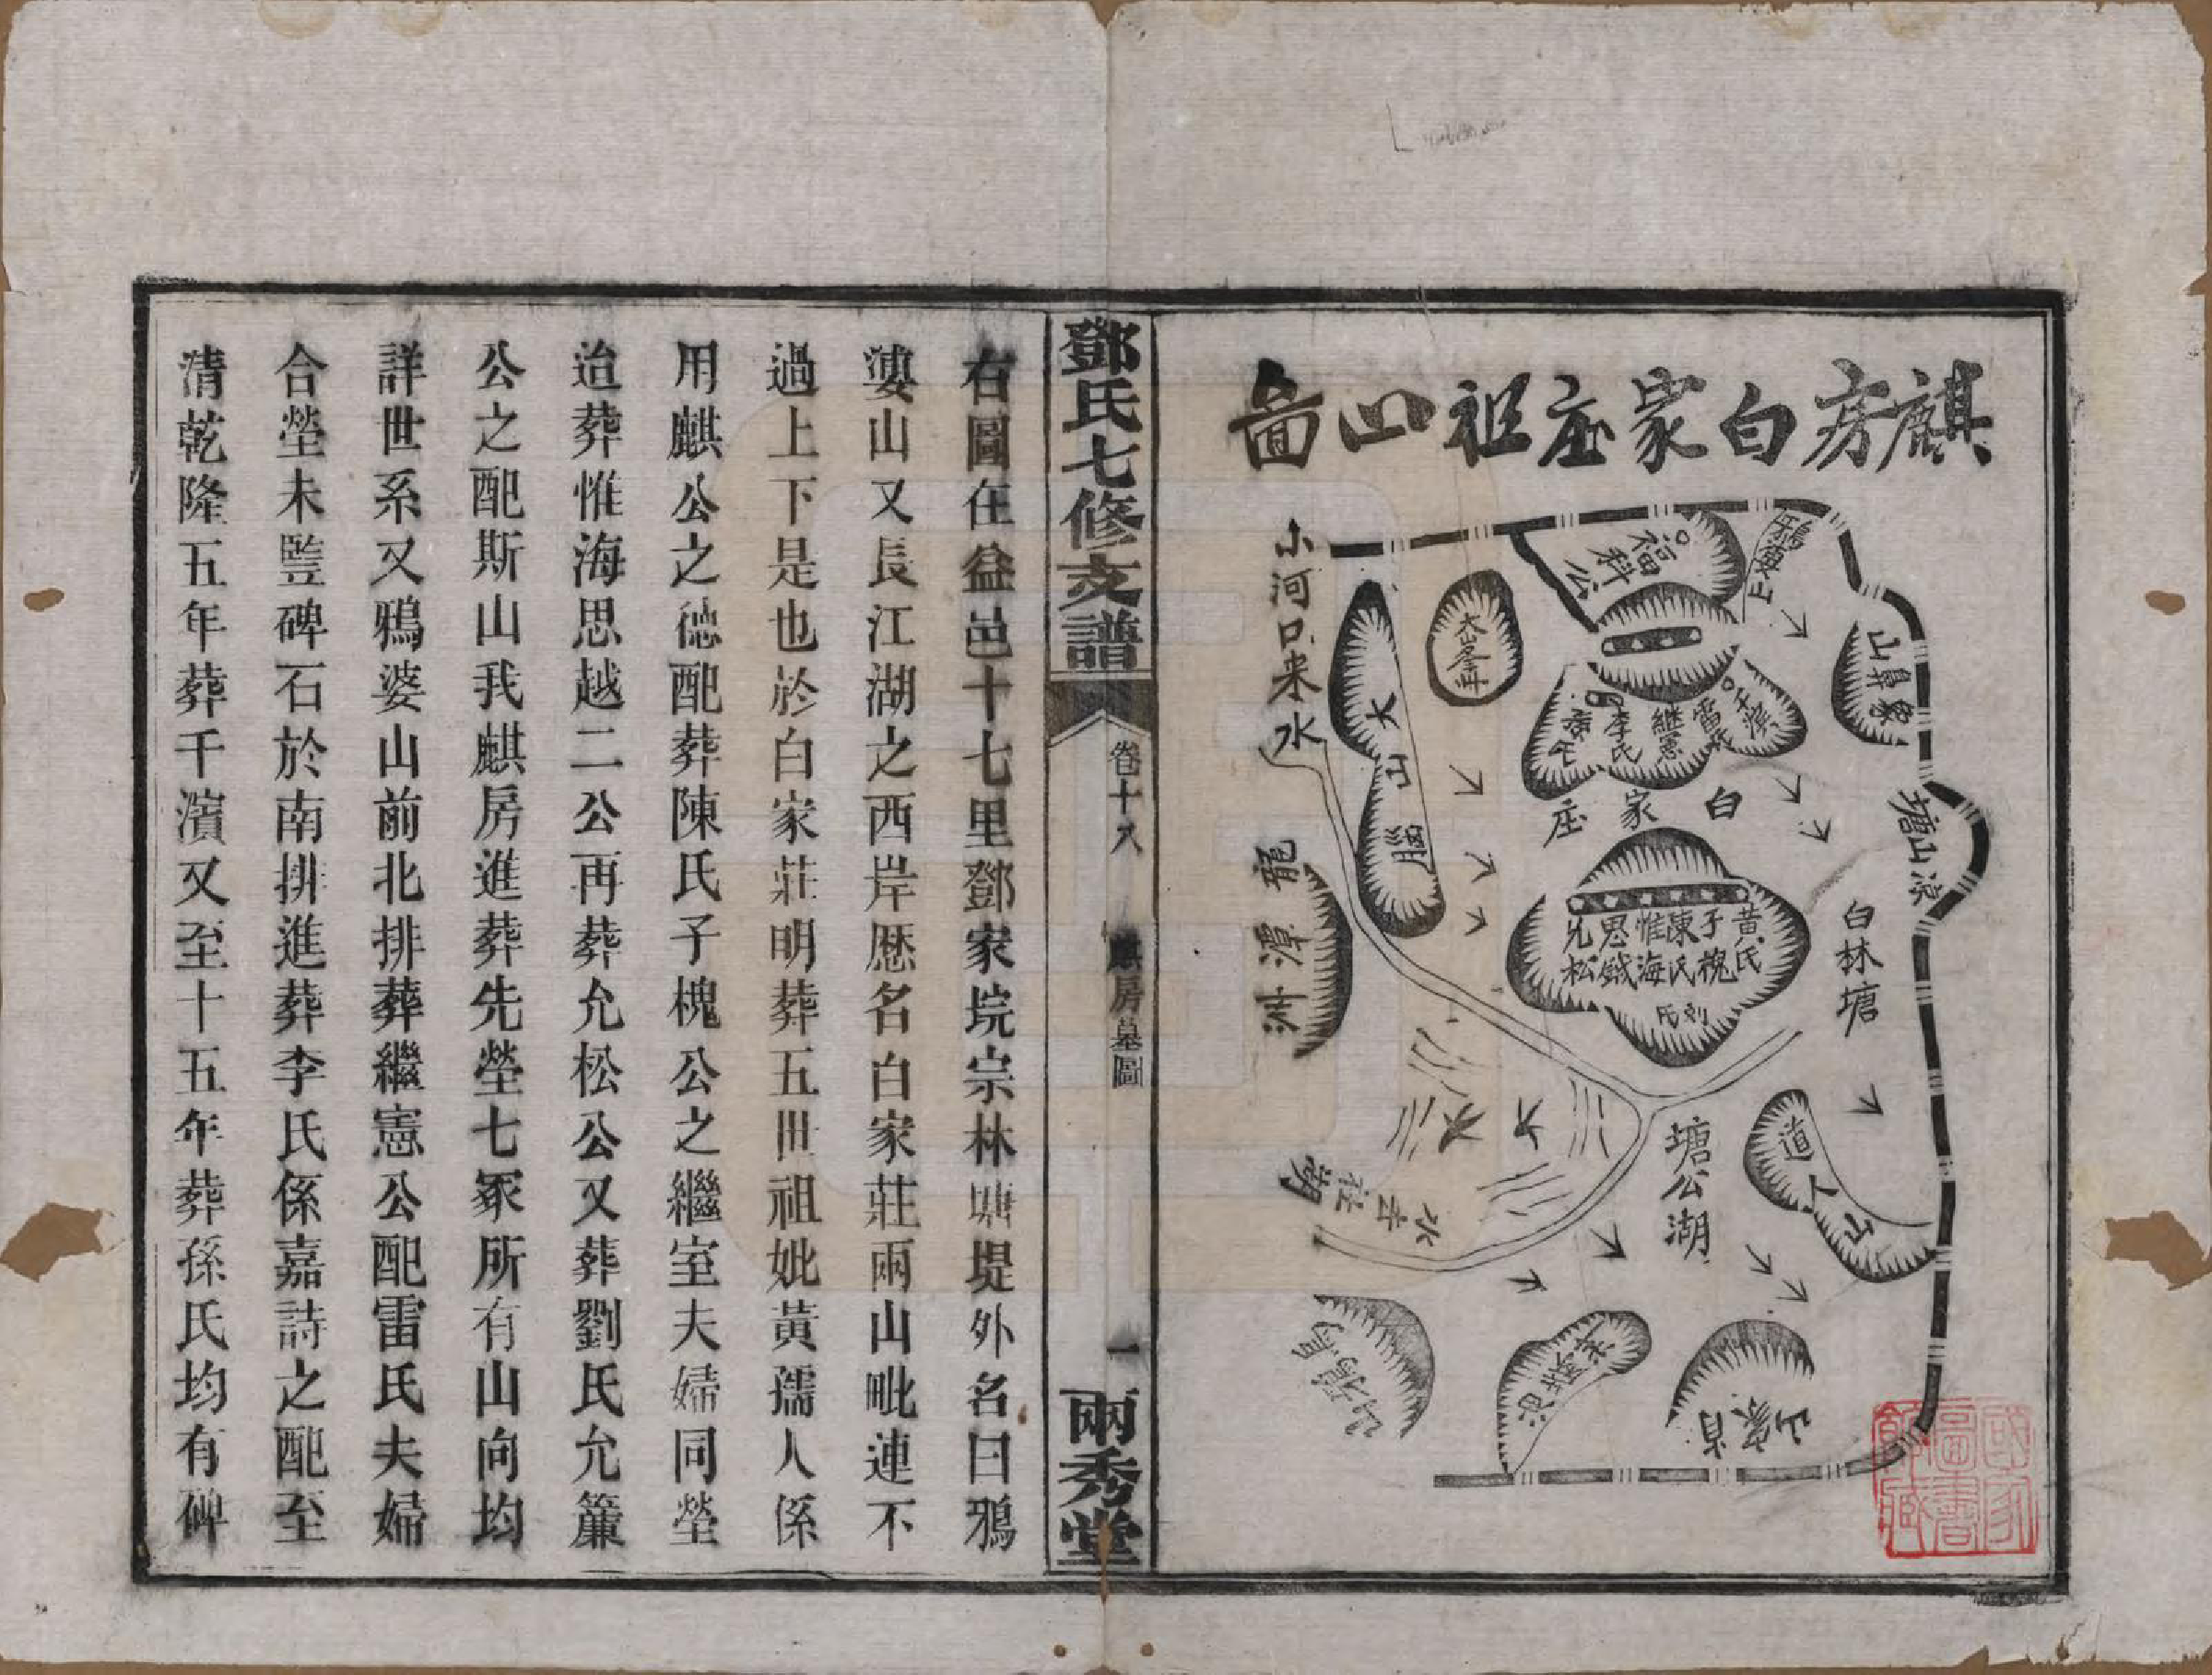 麒房白家庄祖山啚
小河口來水
福科公
鴉婆山
大山峯
大山腦
象鼻山
繼憲
雷氏
李氏
白家庄
塘山凉
龍潭
黃氏
子槐
陳氏
惟海
思鉞
允松
刘氏
白林塘
道人山
塘公湖
水去
湖
肖家山
國家圖書館藏
鄧氏七修支譜
卷十八
麒房墓圖
一
兩秀堂
右圖在益邑十七里鄧家垸宗林塘堤外名曰鴉
婆山又長江湖之西岸歷名白家莊兩山毗連不
過上下是也於白家莊明葬五世祖妣黃孺人係
用麒公之德配葬陳氏子槐公之繼室夫婦同塋
迨葬惟海思越二公再葬允松公又葬劉氏允簾
公之配斯山我麒房進葬先塋七冢所有山向均
詳世系又鴉婆山前北排葬繼憲公配雷氏夫婦
合塋未竪碑石於南排進葬李氏係嘉詩之配至
清乾隆五年葬千濱又至十五年葬孫氏均有碑